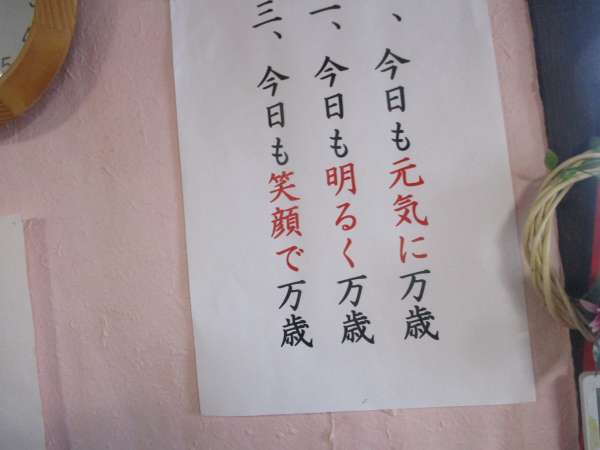 、今日も元気に万歳
一、今日も明るく万歳
三、今日も笑顔で万歳
5